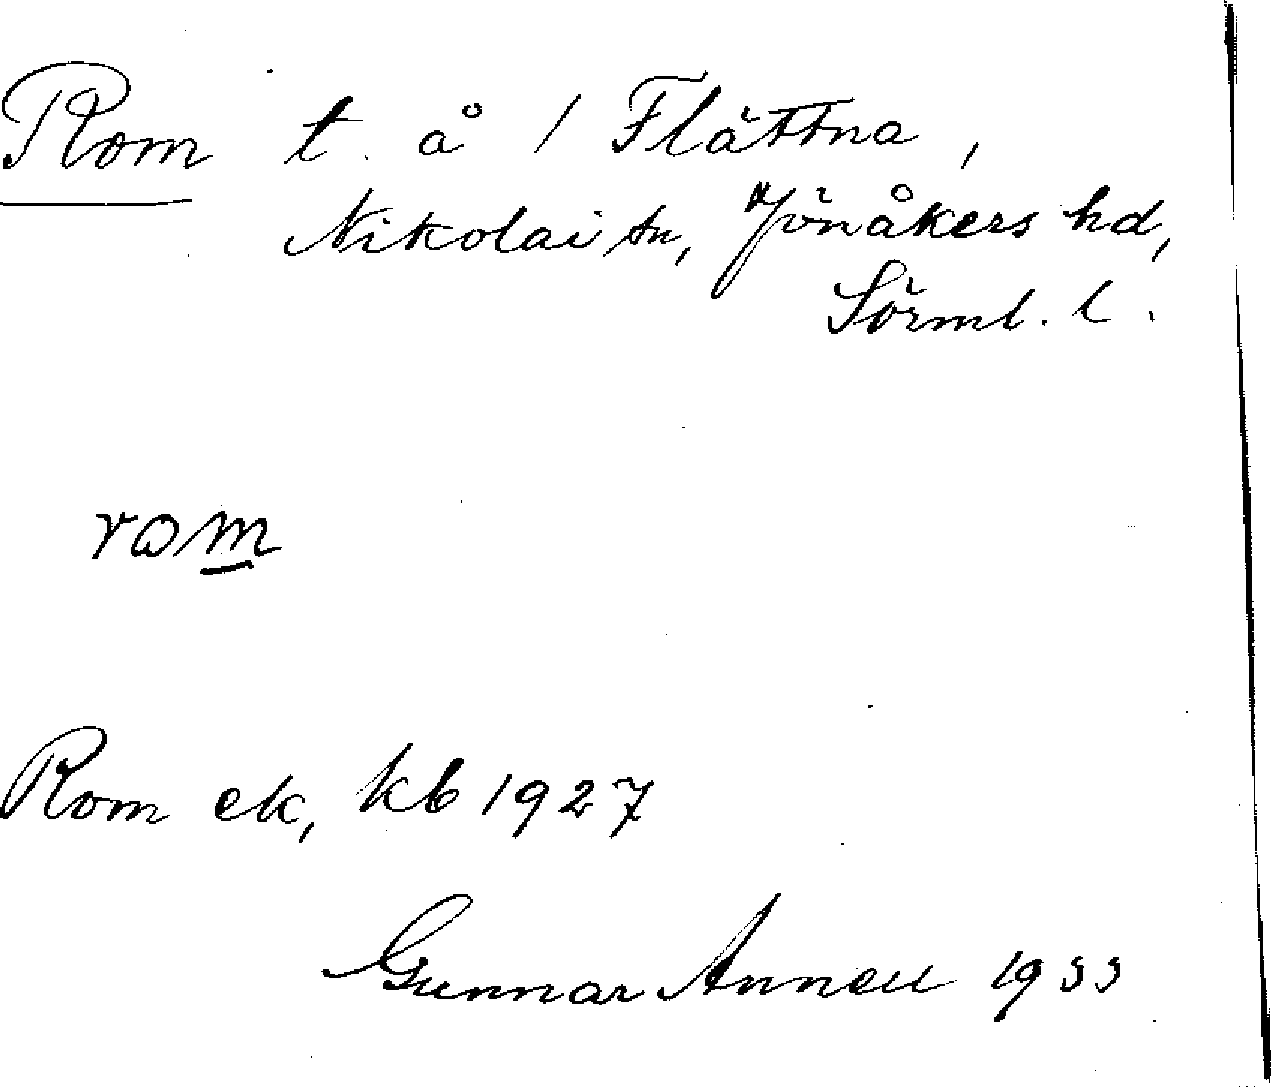 Rom t. å 1 Flättna,
Nikolai sn, Jönåkers hd,
Sörml. l.
rom
Rom ek, kb 1927
Gunnar Annell 1933